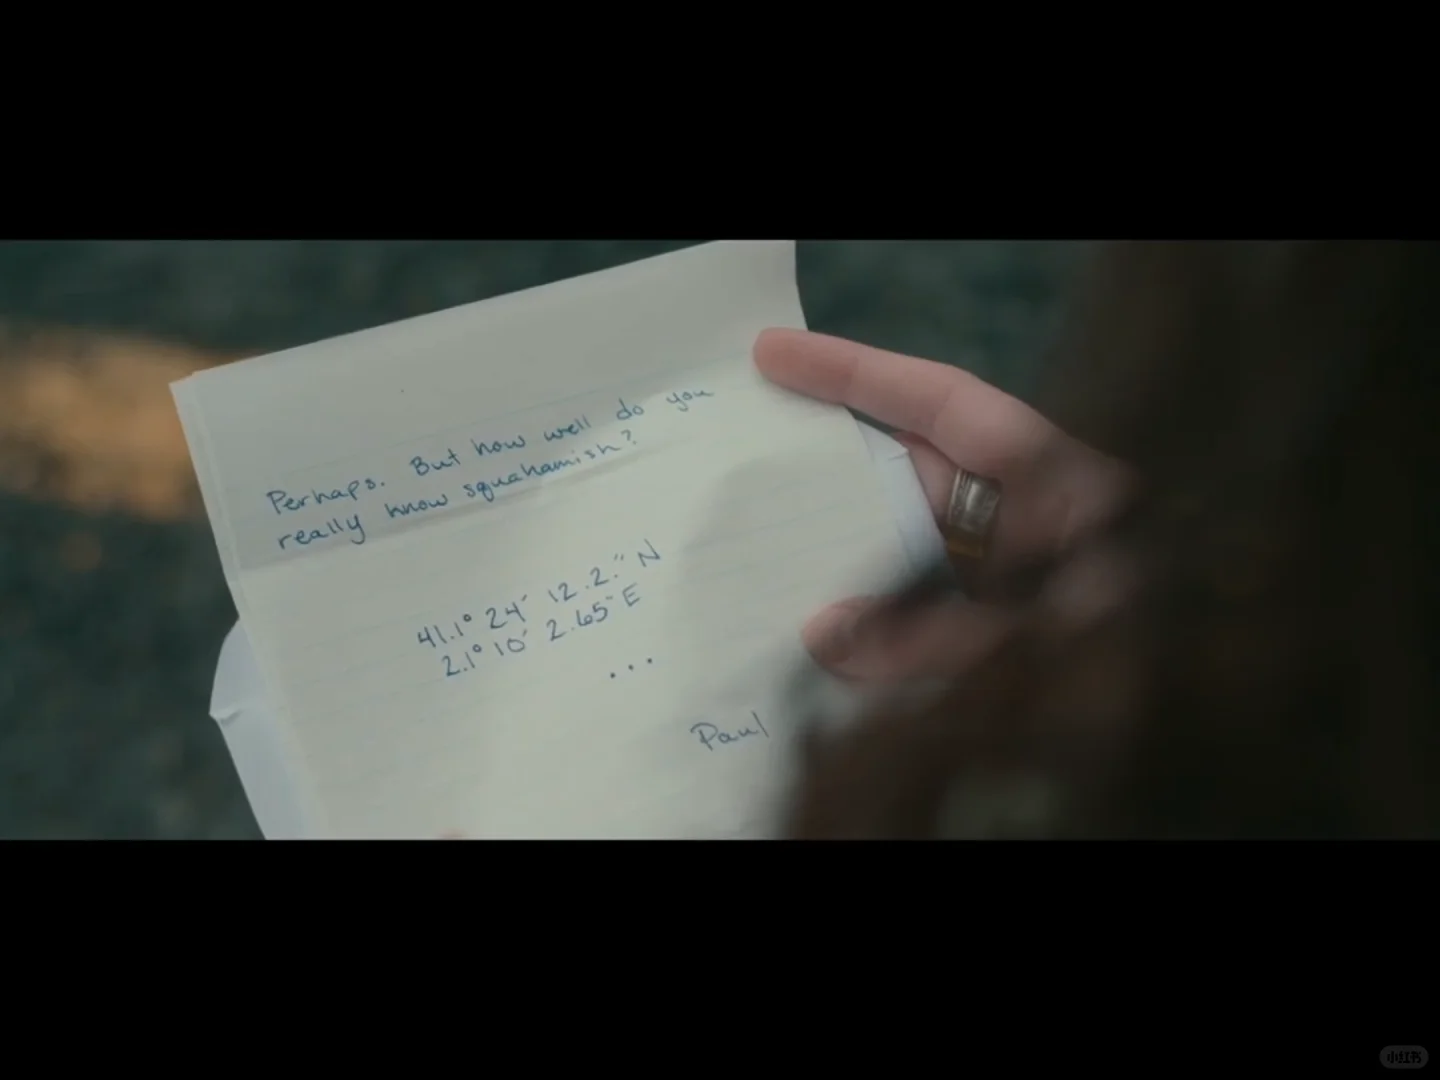 Perhaps. But how well do you
really know squahamish?
41.1° 24′ 12.2.″ N
2.1° 10′ 2.65″ E
...
Paul
小红书